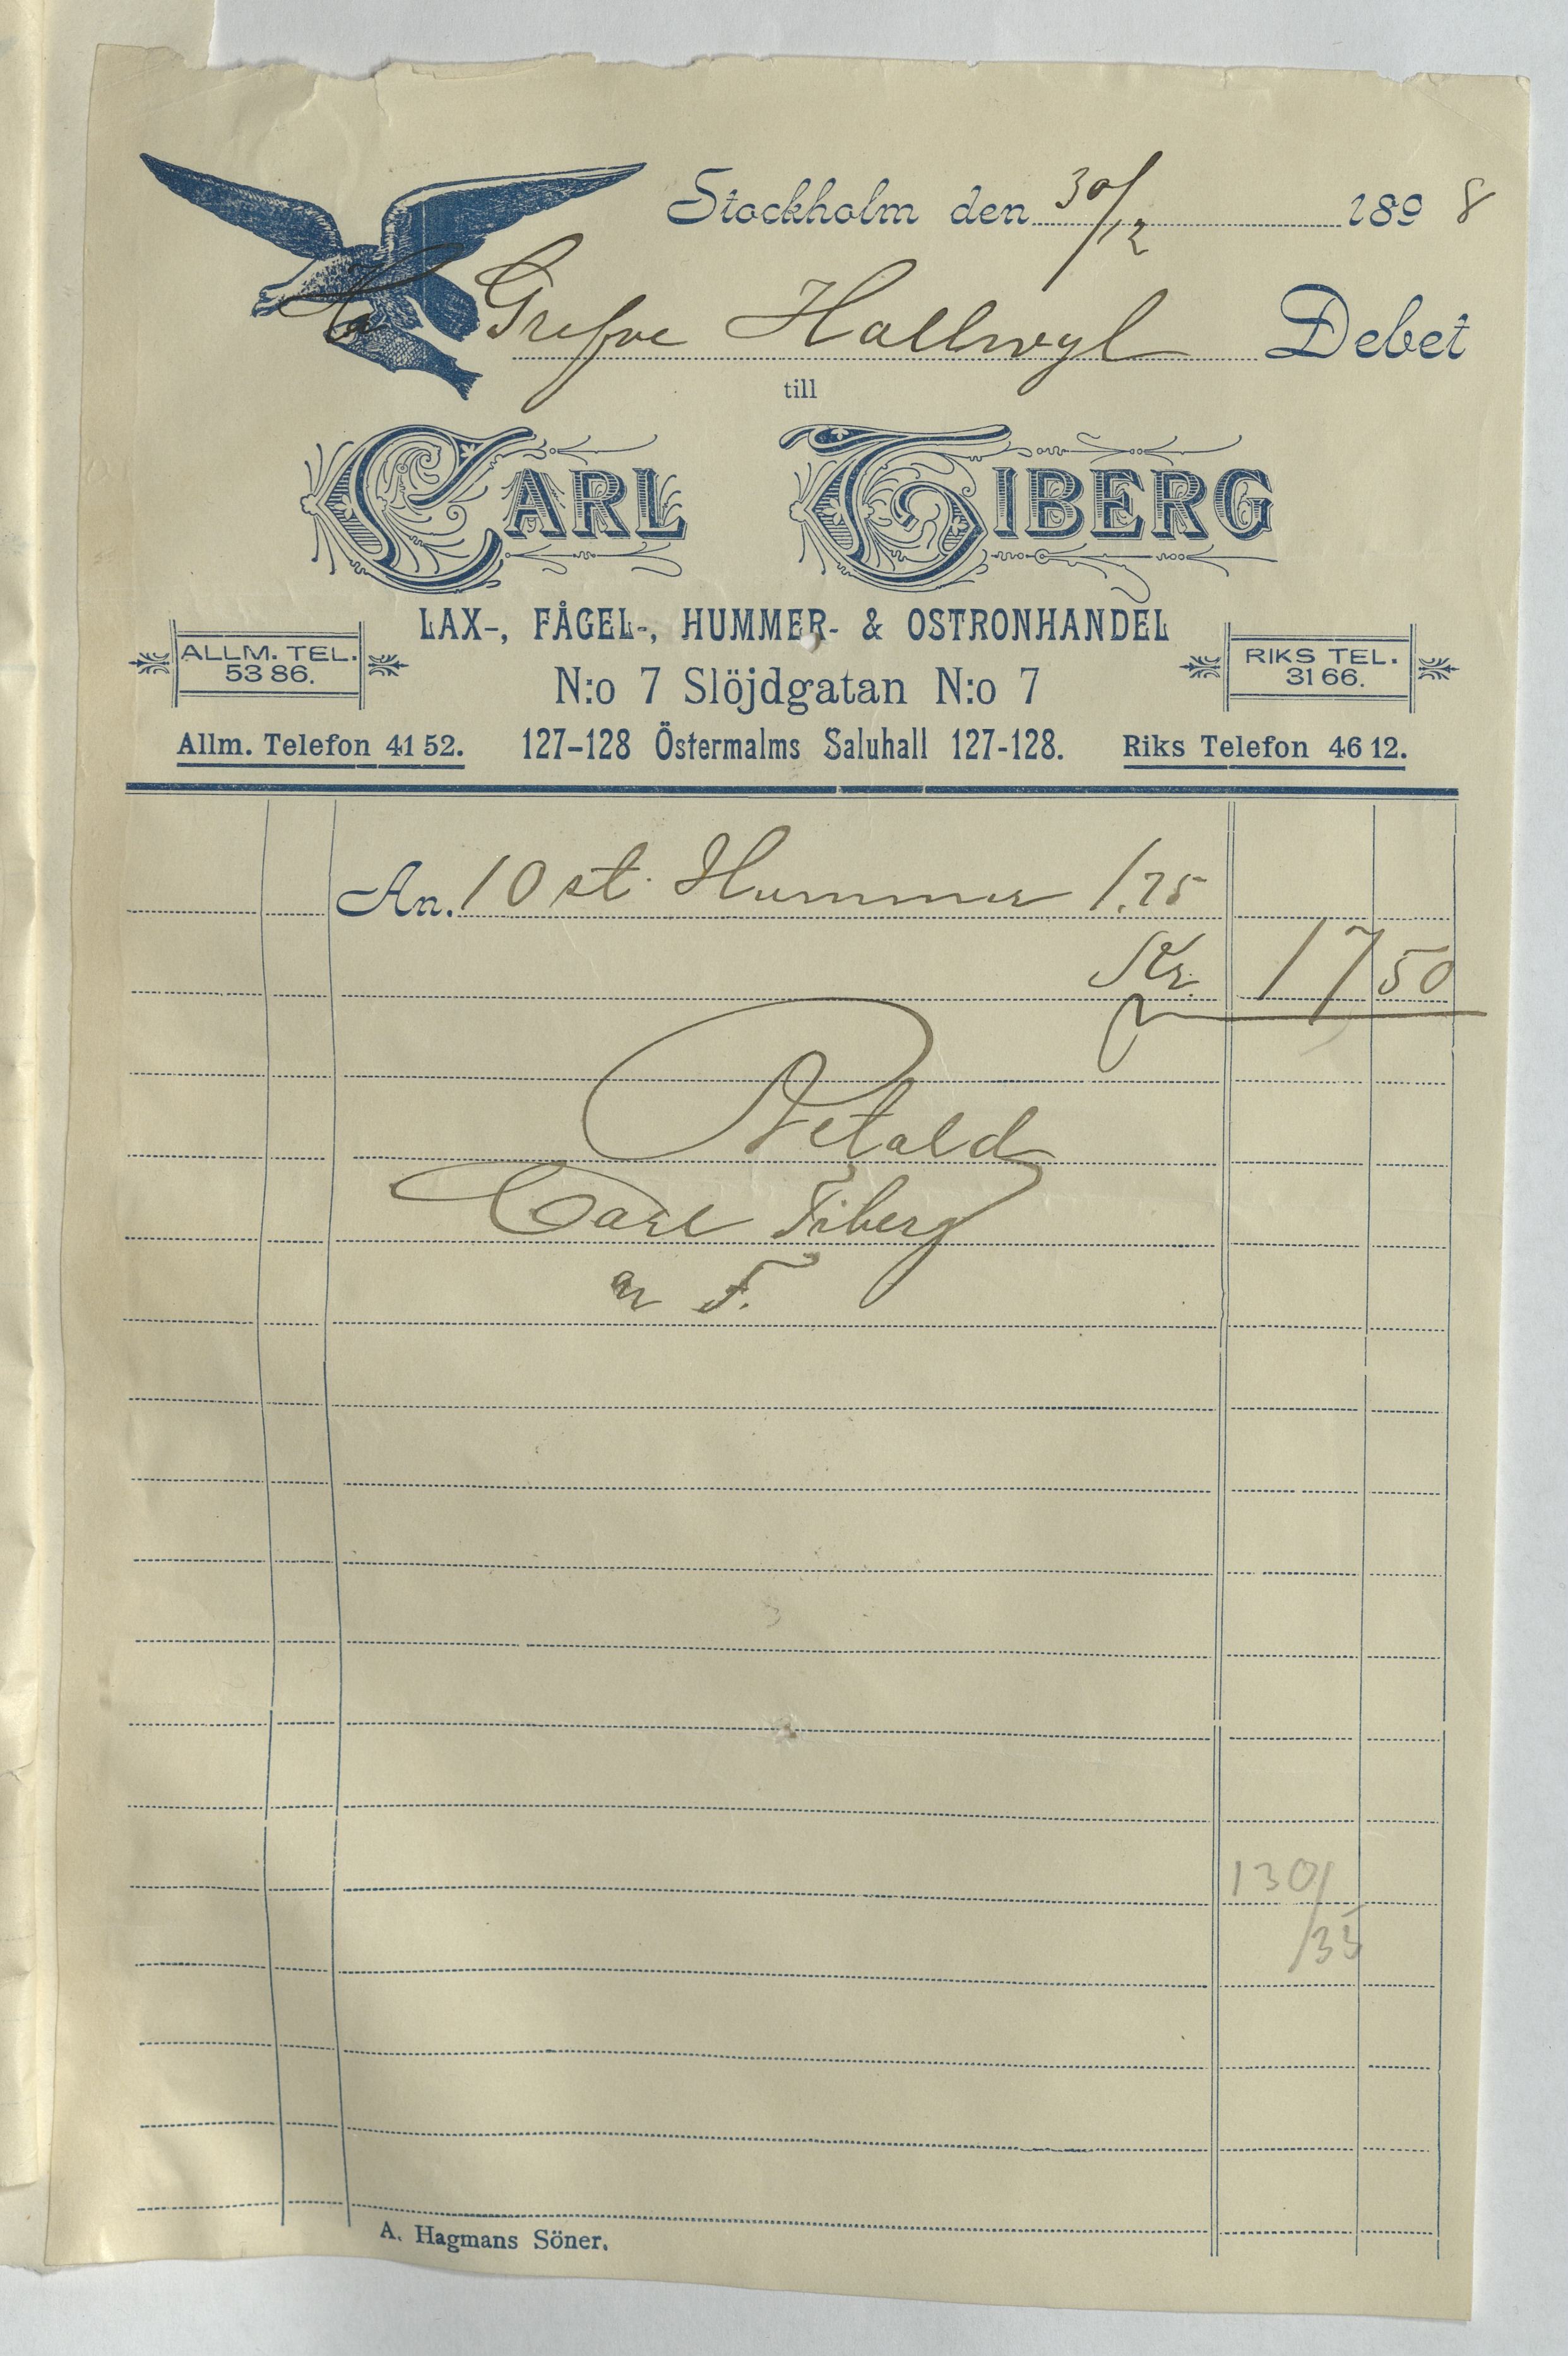 Stockholm den 30/12 1898
Grefve Hallwyl Debet
till
CARL TIBERG
LAX-, FÅGEL-, HUMMER- & OSTRONHANDEL
ALLM. TEL. 5386. N:o 7 Slöjdgatan N:o 7 RIKS TEL. 3166.
Allm. Telefon 4152. 127-128 Östermalms Saluhall 127-128. Riks Telefon 4612.
An. 10 st. Hummer 1.75
Kr. 17 50
Betald
Carl Tiberg
130/
/35
A. Hagmans Söner.